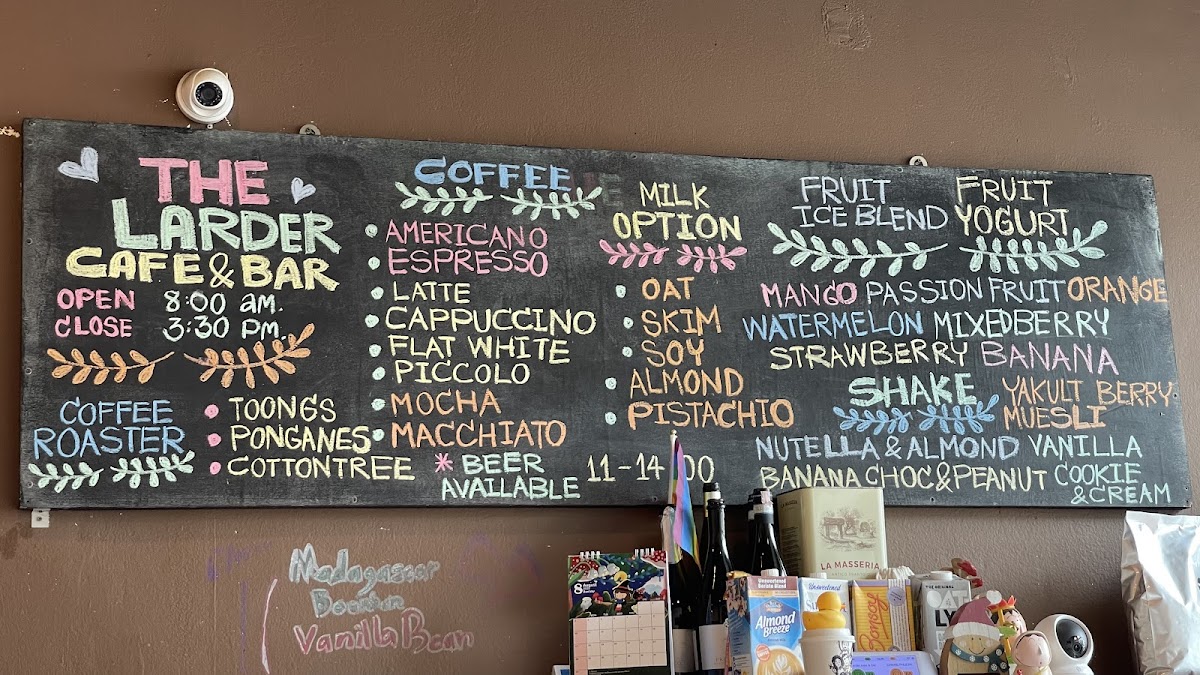 THE
LARDER
CAFE & BAR
OPEN 8:00 am.
CLOSE 3:30 pm.
COFFEE
ROASTER
TOONGS
PONGANES
COTTONTREE
COFFEE
AMERICANO
ESPRESSO
LATTE
CAPPUCCINO
FLAT WHITE
PICCOLO
MOCHA
MACCHIATO
* BEER
AVAILABLE
11-14 00
MILK
OPTION
OAT
SKIM
SOY
ALMOND
PISTACHIO
FRUIT
ICE BLEND
FRUIT
YOGURT
MANGO PASSION FRUIT ORANGE
WATERMELON MIXEDBERRY
STRAWBERRY BANANA
SHAKE
YAKULT BERRY
MUESLI
NUTELLA & ALMOND VANILLA
BANANA CHOC & PEANUT COOKIE
& CREAM
Madagascar
Bourbon
Vanilla Bean
8
LA MASSERIA
Unsweetened
Barista Blend
Almond
Breeze
Bonsoy
OAT
LY